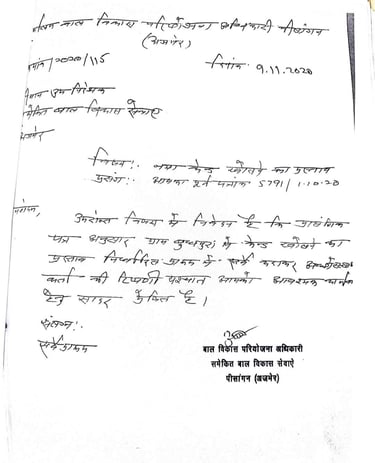 बाल विकास परियोजना अधिकारी पीसांगन
(अजमेर)
क्रमांक/2020/115 दिनांक 9.11.2020
उप निदेशक
समेकित बाल विकास सेवाएं
अजमेर
विषय:- नया केन्द्र खोलने का प्रस्ताव
प्रसंग:- आपका पत्र क्रमांक 5791/1.10.20
महोदय,
उपरोक्त विषय में निवेदन है कि प्रासंगिक
पत्र अनुसार ग्राम में केन्द्र खोलने का
प्रस्ताव निर्धारित प्रपत्र में सर्वे कराकर
कर्ता की टिप्पणी पश्चात आपको आवश्यक
हेतु सादर प्रेषित है।
संलग्न:-
सर्वे प्रपत्र
बाल विकास परियोजना अधिकारी
समेकित बाल विकास सेवाऐं
पीसांगन (अजमेर)